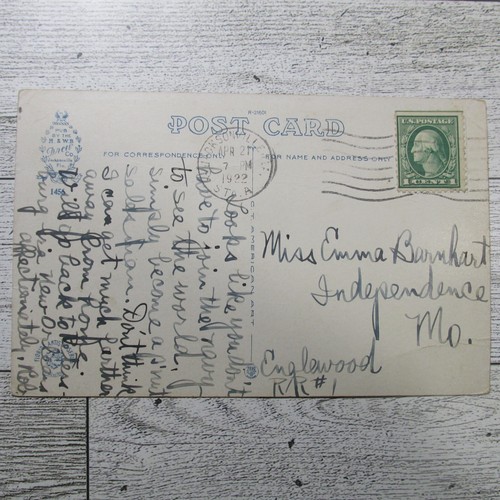 POST CARD
FOR CORRESPONDENCE ONLY
FOR NAME AND ADDRESS ONLY
APR 21
7 PM
1922
U.S. POSTAGE
Looks like you don't
have to join the navy
to see the world. I
simply become a
Salt from. Don't think
I can get much further
away from home.
Will go back to the
in New Orleans
affectionately, Rob
Miss Emma Barnhart
Independence
Mo.
Englewood
RR #1